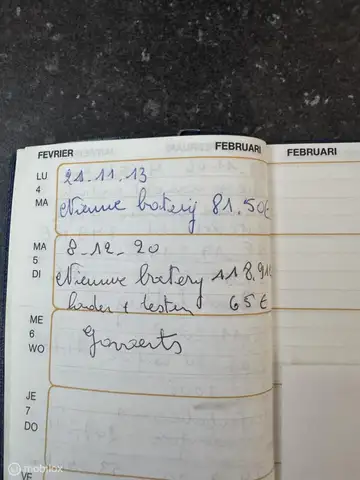 FEVRIER FEBRUARI FEBRUARI
LU
4
MA
21.11.13
Nieuwe batery 81.50€
MA
5
DI
8-12-20
Nieuwe batery 118.91€
laden + testen 65€
ME
6
WO
Govaerts
JE
7
DO
VE
mobilox